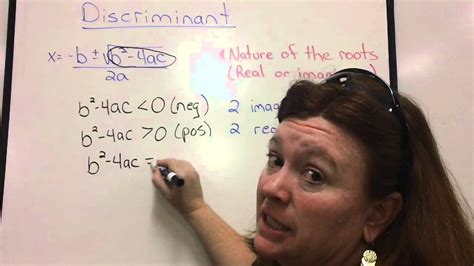 Discriminant
x = -b ± √b²-4ac
2a
Nature of the roots
(Real or
b²-4ac < 0 (neg) 2
b²-4ac > 0 (pos) 2
b²-4ac =